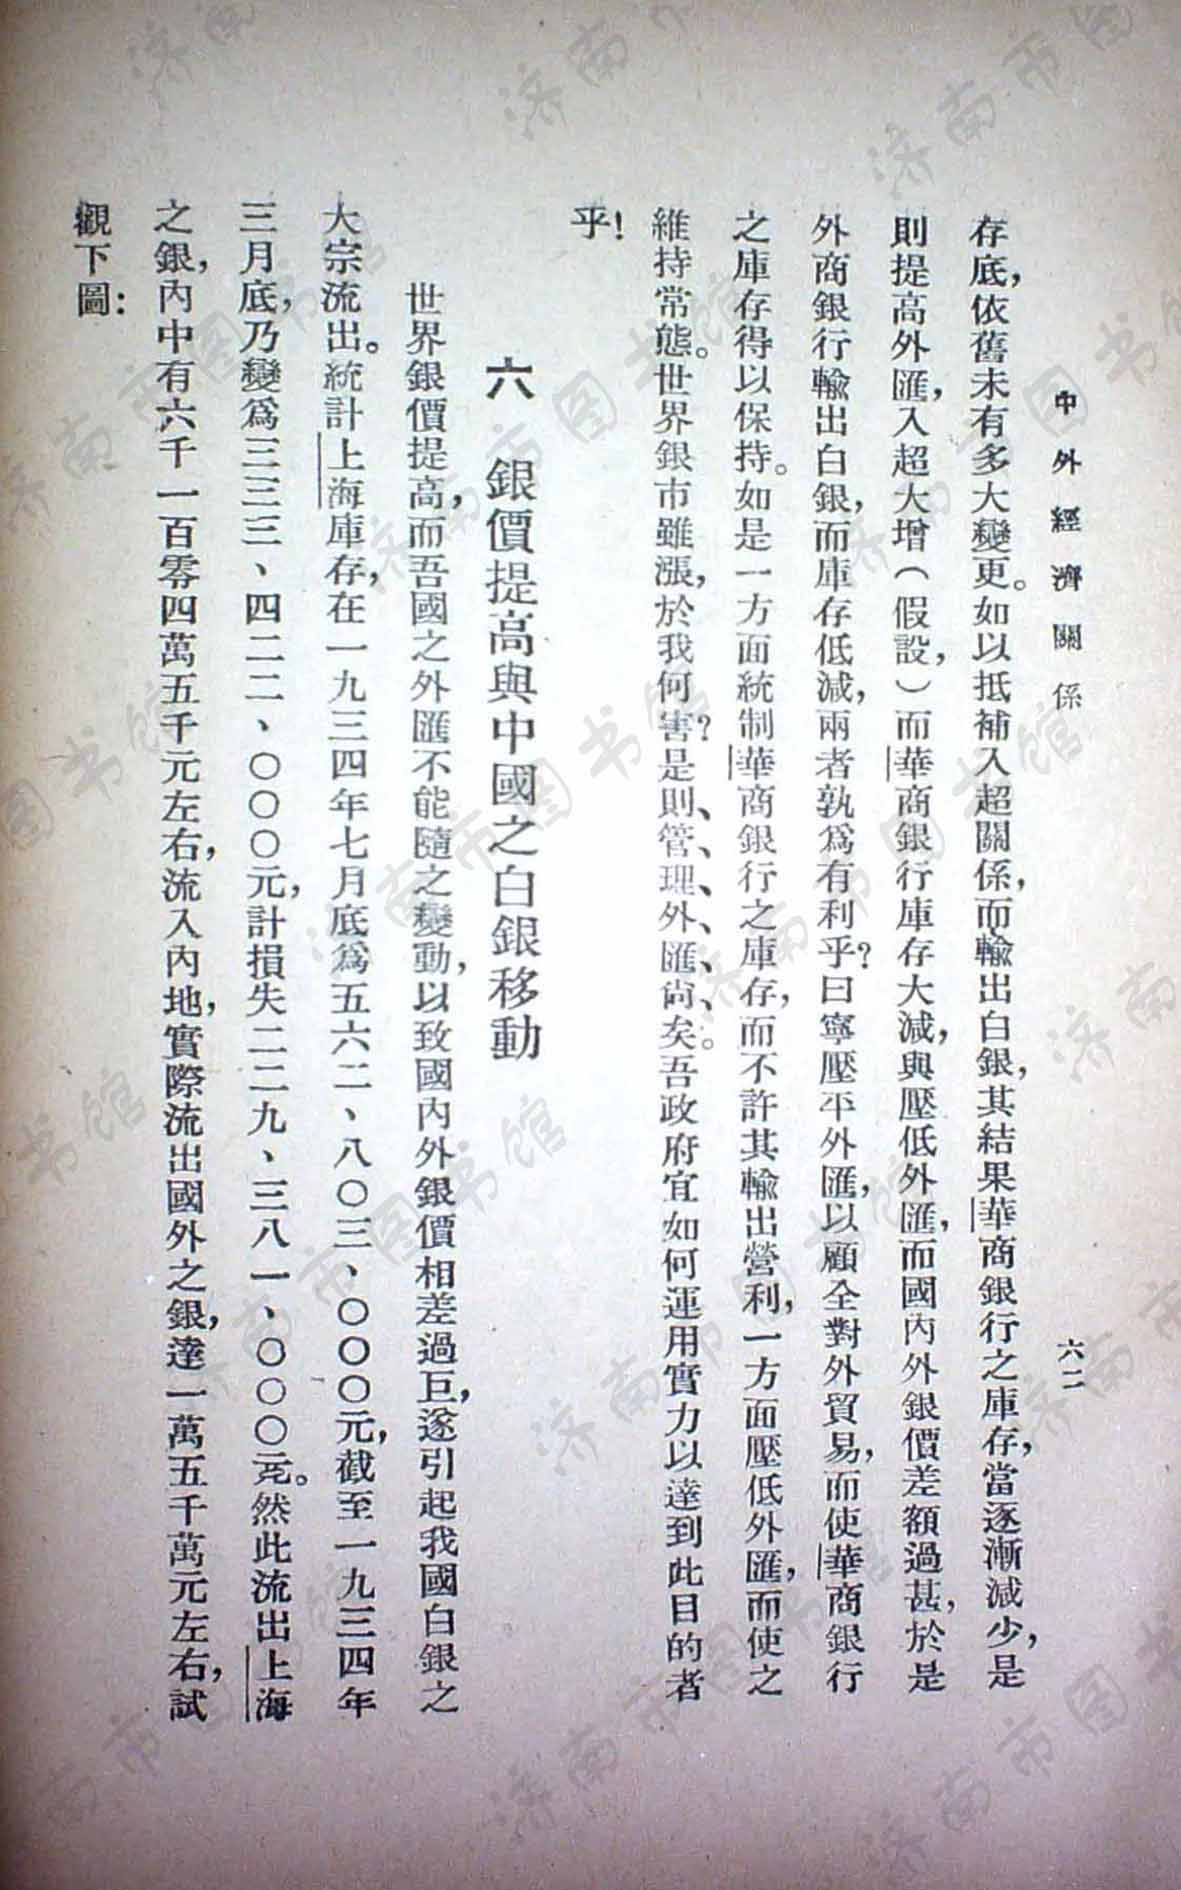 中外經濟關係
六二
存底，依舊未有多大變更。如以抵補入超關係，而輸出白銀，其結果華商銀行之庫存，當逐漸減少，是
則提高外匯，入超大增（假設，）而華商銀行庫存大減，與壓低外匯，而國內外銀價差額過甚，於是
外商銀行輸出白銀，而庫存低減，兩者孰為有利乎？曰寧壓平外匯，以顧全對外貿易，而使華商銀行
之庫存得以保持。如是一方面統制華商銀行之庫存，而不許其輸出營利，一方面壓低外匯，而使之
維持常態。世界銀市雖漲，於我何害？是則管理外匯尚矣。吾政府宜如何運用實力以達到此目的者
乎！
六 銀價提高與中國之白銀移動
世界銀價提高，而吾國之外匯不能隨之變動，以致國內外銀價相差過巨，遂引起我國白銀之
大宗流出。統計上海庫存，在一九三四年七月底為五六二、八〇三、〇〇〇元，截至一九三四年
三月底，乃變為三三三、四二二、〇〇〇元，計損失二二九、三八一、〇〇〇元。然此流出上海
之銀，內中有六千一百零四萬五千元左右，流入內地，實際流出國外之銀，達一萬五千萬元左右，試
觀下圖：
济南市图书馆